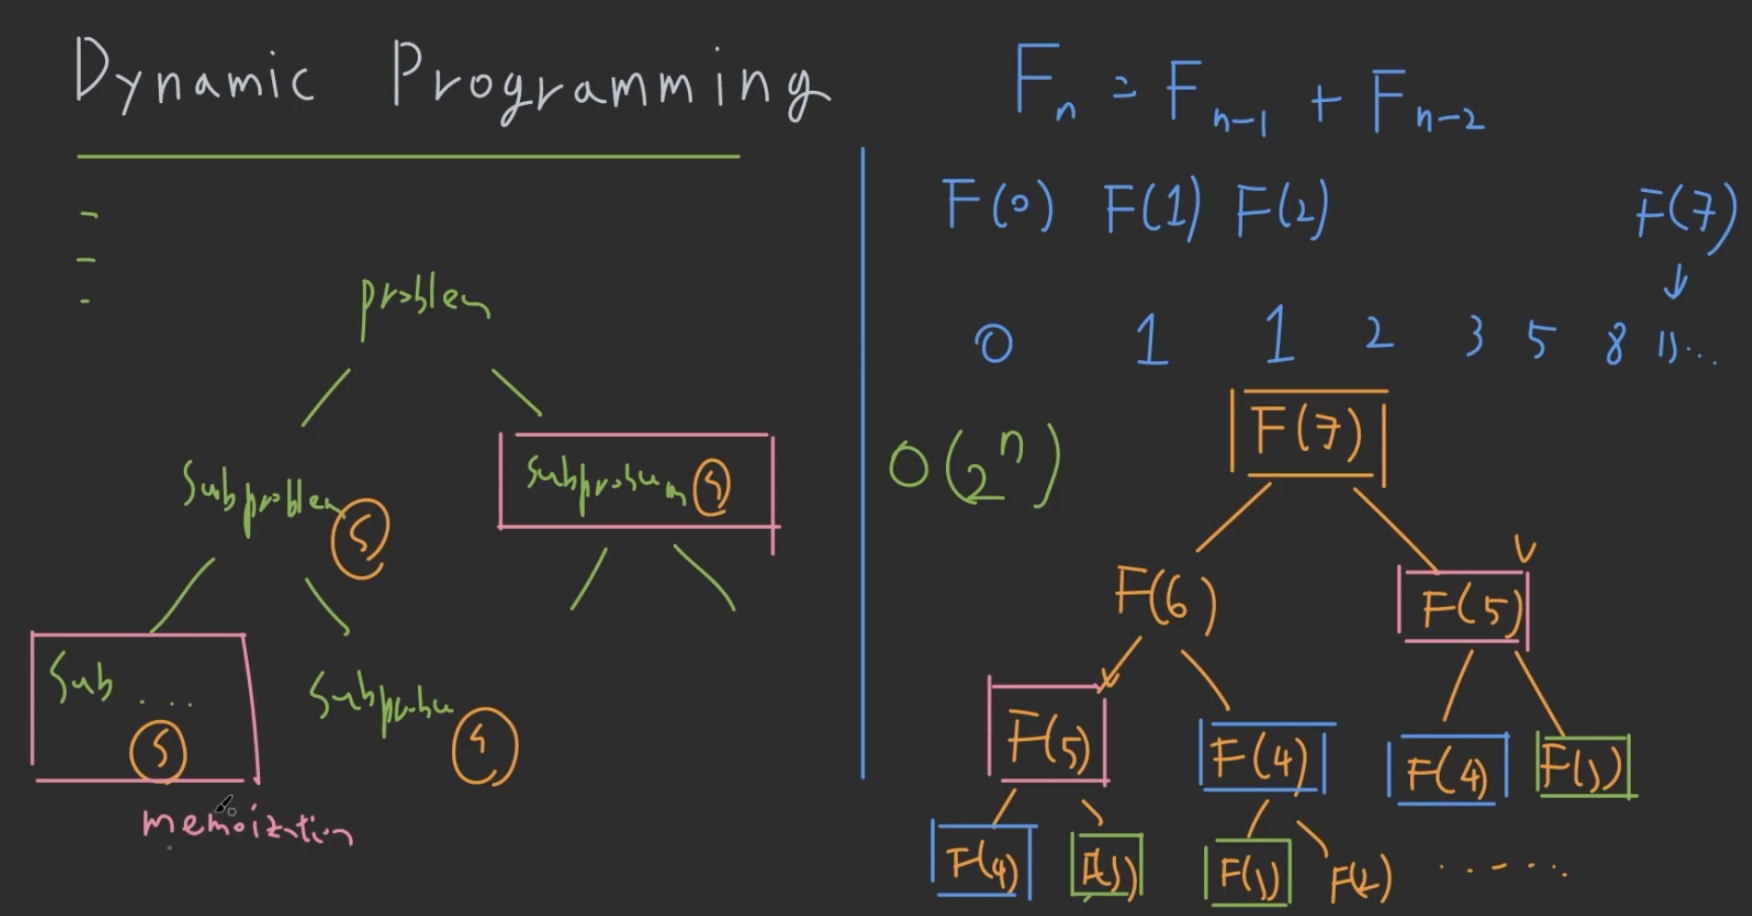 Dynamic Programming
problem
Subproblem S
Subproblem S
Sub ... S
Subproblem S
memoization
Fn = Fn-1 + Fn-2
F(0) F(1) F(2) F(7)
↓
0 1 1 2 3 5 8 13...
O(2^n)
F(7)
F(6) F(5)
F(5) F(4) F(4) F(3)
F(4) F(3) F(3) F(2) ......